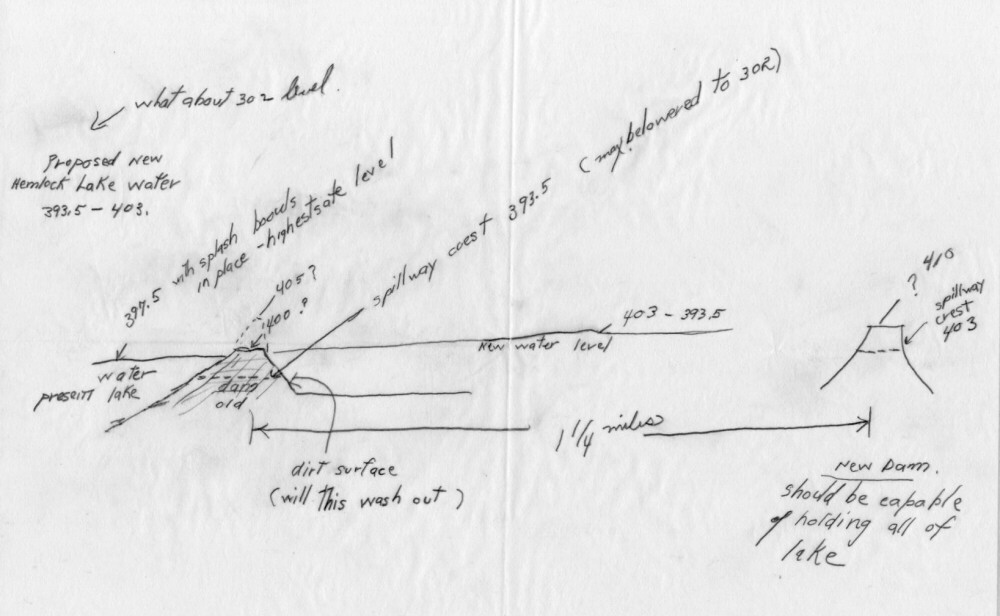 what about 302 level.
Proposed New
Hemlock Lake water
393.5 - 403.
397.5 with splash boards
in place - highest safe level
405?
400?
spillway crest 393.5 (may be lowered to 302)
403 - 393.5
New water level
water
present lake
dam
old
? 410
spillway
crest
403
1 1/4 miles
dirt surface
(will this wash out)
New Dam.
should be capable
of holding all of
lake